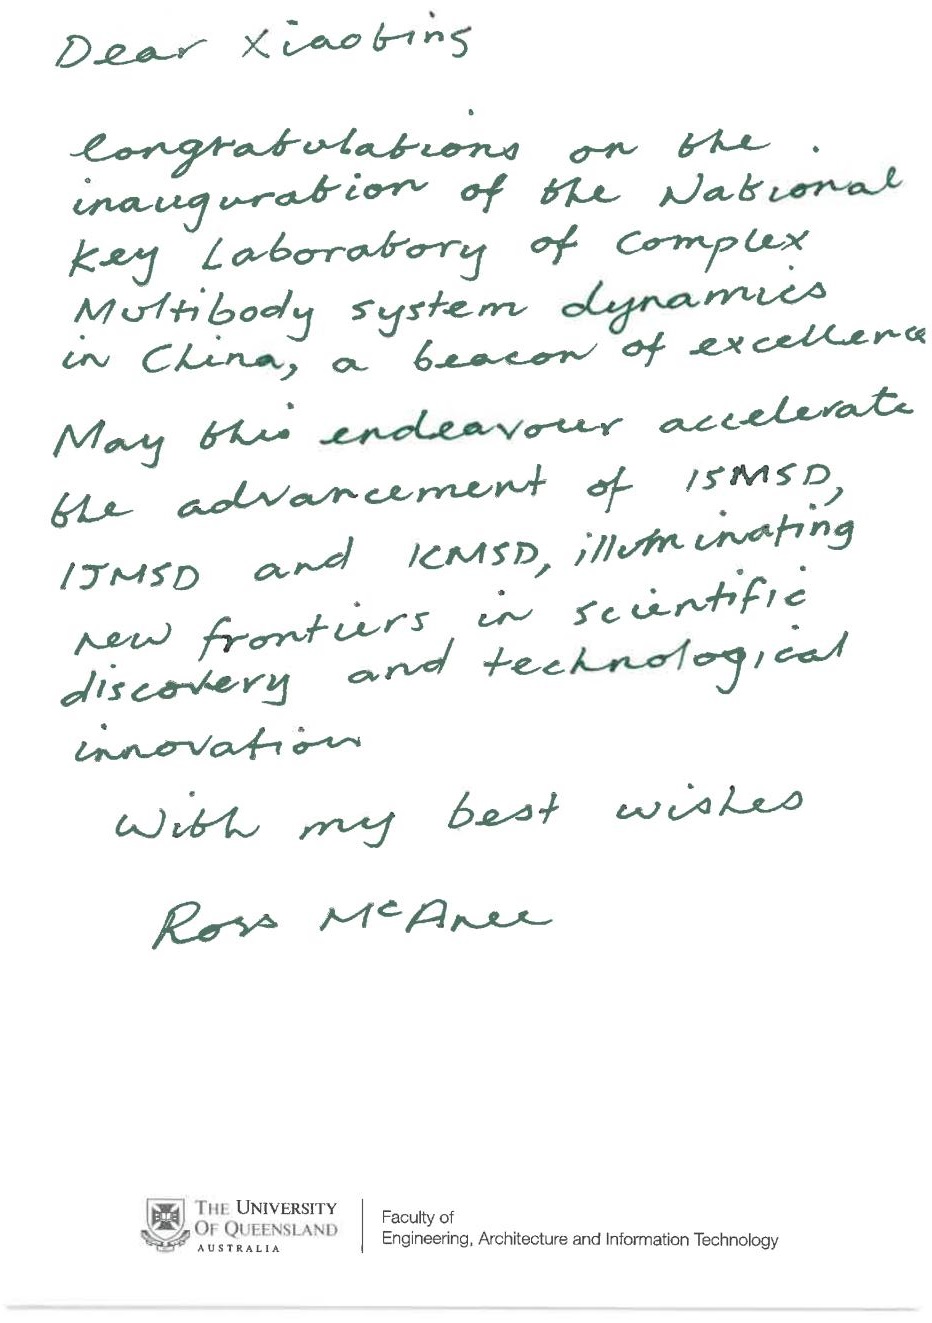 Dear Xiaobing
Congratulations on the
inauguration of the National
Key Laboratory of Complex
Multibody system dynamics
in China, a beacon of excellence
May this endeavour accelerate
the advancement of ISMSD,
IJMSD and ICMSD, illuminating
new frontiers in scientific
discovery and technological
innovation
With my best wishes
Ross McAree
THE UNIVERSITY
OF QUEENSLAND
AUSTRALIA
Faculty of
Engineering, Architecture and Information Technology